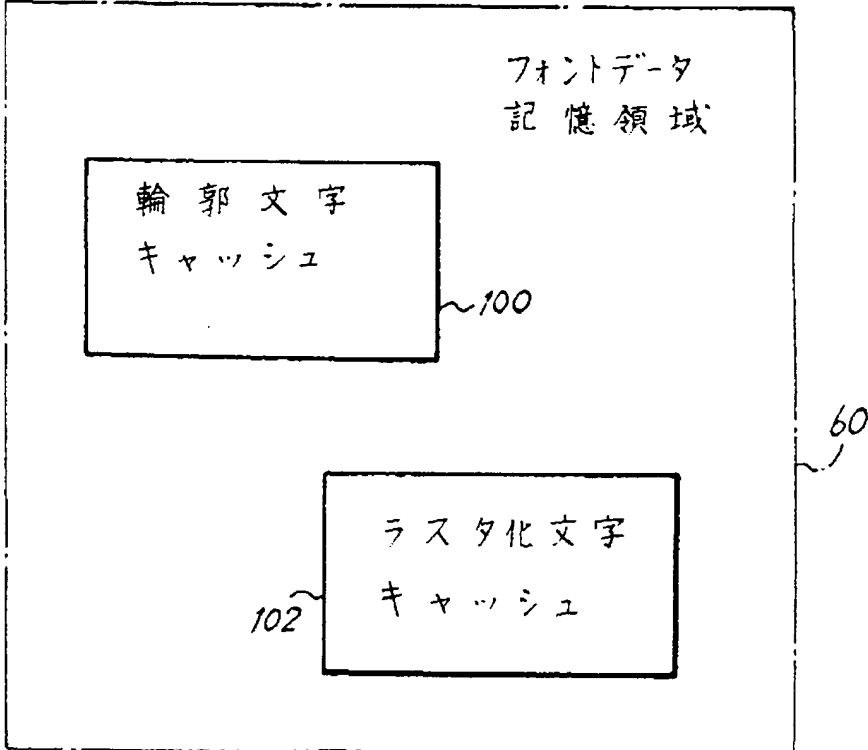 フォントデータ
記憶領域
輪郭文字
キャッシュ
100
60
ラスタ化文字
キャッシュ
102